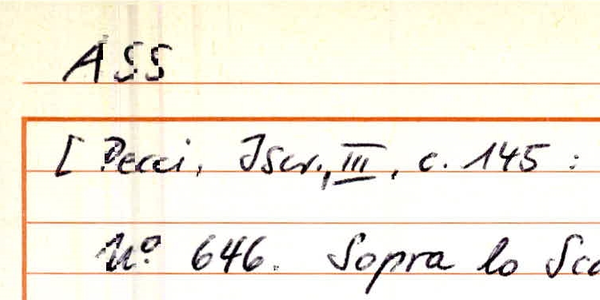 ASS
[ Pecci, Iscr., III, c. 145 :
Nº 646. Sopra lo